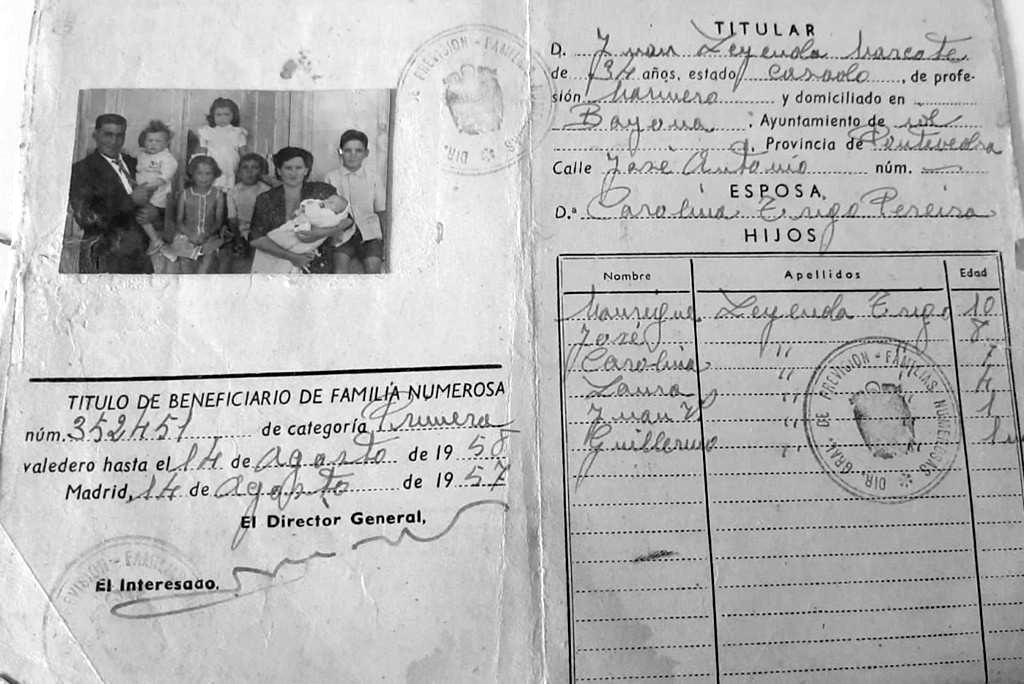 TITULO DE BENEFICIARIO DE FAMILIA NUMEROSA
núm. 352451 de categoría Primera
valedero hasta el 14 de Agosto de 19 58
Madrid, 14 de Agosto de 19 57
El Director General,
El Interesado,
DIR. GRAL. DE PREVISION - FAMILIAS
TITULAR
D. Juan Leyenda
de 34 años, estado casado, de profe-
sión Marinero y domiciliado en
Bayona, Ayuntamiento de
Provincia de Pontevedra
Calle José Antonio núm. —
ESPOSA
D.ª Carolina Trigo Pereira
HIJOS
Nombre Apellidos Edad
Manrique Leyenda Trigo 10
José " " 8
Carolina " " 7
Laura " " 4
Juan " " 1
Guillermo " "
DIR. GRAL. DE PREVISION - FAMILIAS NUMEROSAS